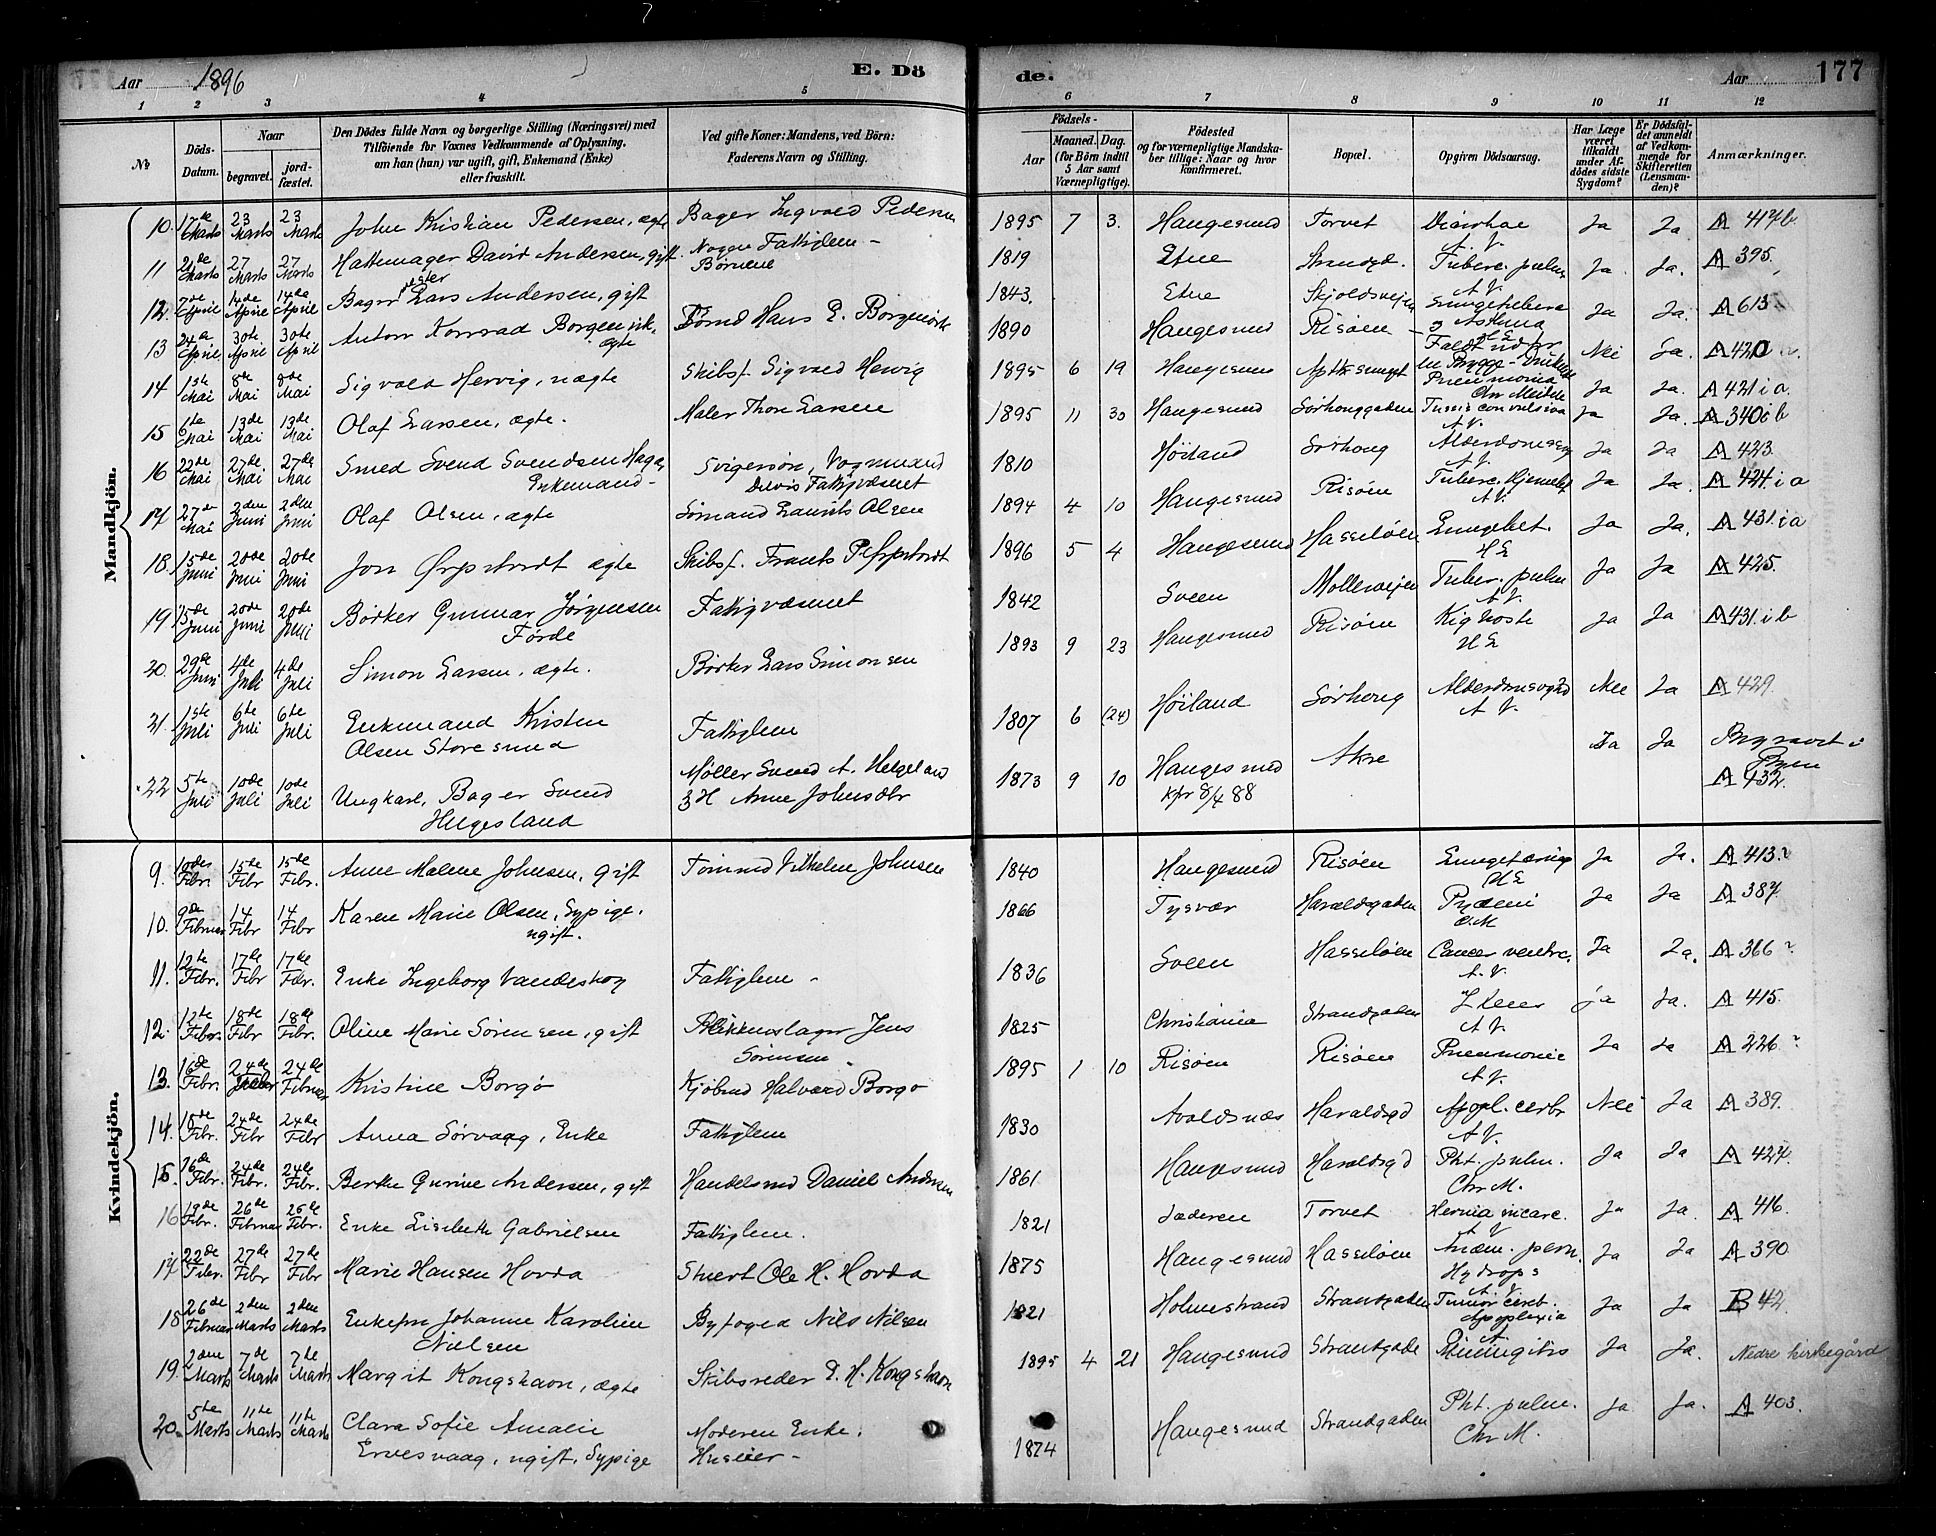 Aar 1896 E. Dö de. Aar 177
1 2 3 4 5 6 7 8 9 10 11 12
№ Döds-Datum. Naar begravet. jordfæstet. Den Dödes fulde Navn og borgerlige Stilling (Næringsvei) med Tilföiende for Voxnes Vedkommende af Oplysning, om han (hun) var ugift, gift, Enkemand (Enke) eller fraskilt. Ved gifte Koner: Mandens, ved Börn: Faderens Navn og Stilling. Födsels- Aar Maaned. Dag. (for Börn indtil 5 Aar samt Værnepligtige). Födested og for værnepligtige Mandskaber tillige: Naar og hvor konfirmeret. Bopæl. Opgiven Dödsaarsag. Har Læge været tilkaldt under Afdödes sidste Sygdom? Er Dödsfaldet anmeldt af Vedkommende for Skifteretten (Lensmanden)? Anmærkninger.
Mandkjön.
10. 17de Marts 23 Marts 23 Marts John Kristian Pedersen, ægte Bager Ingvald Pedersen 1895 7 3. Haugesund Torvet Diarrhae A. V. Ja Ja. A 417b
11 21de Marts 27 Marts 27 Marts Hattemager David Andersen, gift. Fattiglem - Børnene 1819 Etne Strandgd. Tuberc. pulm A V. Ja. Ja. A 395.
12. 7de April 14de April 14de April Bager Lars Andersen, gift 1843. Etne Skjoldsveien Ja Ja. A 613
13 24de April 30te April 30te April Anton Konrad Borgenvik, ægte Tømd Hans E. Borgenvik 1890 Haugesund Risøen Nei Ja. A 420
14 1ste Mai 8de Mai 8de Mai Sigvald Hervig, uægte Skibsf. Sigvald Hervig 1895 6 19 Haugesund Pneumonia Ja Ja. A 421 i a.
15 6te Mai 13de Mai 13de Mai Olaf Larsen, ægte. Maler Thore Larsen 1895 11 30 Haugesund Sørhouggaden Tussis convulsiva A V. Ja Ja. A 340 i b
16 22de Mai 27de Mai 27de Mai Smed Svend Svendsen Haga, Enkemand - Svigersøn, Vognmand Delvis Fattigvæsenet 1810 Høiland Sørhoug Alderdomssvag A V. Ja Ja. A 423.
17 27de Mai 2den Juni 2den Juni Olaf Olsen, ægte Sømand Laurits Olsen 1894 4 10 Haugesund Risøen A V. Ja Ja. A 424. i a
18. 15de Juni 20de Juni 20de Juni Jon ægte Skibsf. Frants 1896 5 4 Haugesund Hasseløen Lungebet. H E Ja Ja. A 431. i a
19. 15de Juni 20de Juni 20de Juni Børker Gunnar Jørgensen Førde Fattigvæsenet 1842 Sveen Mølleveien Tuber. pulm A V. Ja Ja A 425.
20. 29de Juni 4de Juli 4de Juli Simon Larsen, ægte. Børker Lars Simonsen 1893 9 23 Haugesund Risøen Kighoste H E Ja Ja A 431. i b
21. 1ste Juli 6te Juli 6te Juli Enkemand Kristen Olsen Storesund Fattiglem 1807 6 (24) Høiland Sørhoug Alderdomssvaghed A V. Nei Ja A 429.
22 5te Juli 10de Juli 10de Juli Ungkarl, Bager Svend Helgesland Møller Svend A. Helgeland & H Anne Johnsdtr 1873 9 10 Haugesund Kfr 8/4 88 Akre Ja Ja Begravet i Byen A 432.
Kvindekjön.
9. 10de Febr. 15de Febr 15de Febr. Anne Malene Johnsen, gift Tømmd Vilhelm Johnsen 1840 Haugesund Risøen H E Ja Ja. A 413.
10. 9de Februar 14 Febr 14 Febr Karen Marie Olsen, Sypige, ugift. 1866 Tysvær Haraldsgaden Pyæmi C. M Ja Ja A 387.
11. 12te Febr. 17de Febr 17de Febr. Enke Ingeborg Vandeskog Fattiglem - 1836 Sveen Hasseløen Cancer ventric. A. V. Ja Ja. A 366
12. 12te Febr. 18de Febr. 18de Febr. Oline Marie Sørensen, gift Blikkenslager Jens Sørensen 1825 Christiania Strandgaden A V. Ja Ja. A 415.
13. 16de Febr. 24de 24de Februar Kristine Borgø Kjøbmd Halvard Borgø 1895 1 10 Risøen Risøen Pneumonie A V. Ja Ja A 226.
14. 15de Febr. 24de Febr 24de Febr Anna Sørvaag, Enke Fattiglem 1830 Avaldsnæs Haraldsgd Apopl. cerbr A V. Nei Ja A 389.
15. 16de Febr. 24de Febr. 24de Febr. Berthe Gurine Andersen, gift Handelsmd Daniel Andersen 1861. Haugesund Haraldsgd Pht. pulm. Chr M. Ja Ja A 427.
16 19de Febr. 26de Februar 26de Febr. Enke Lisebeth Gabrielsen Fattiglem. 1821 Jæderen Torvet Hernia incarc. A V Ja Ja. A 416.
17 22de Febr. 27de Febr 27de Febr Marie Hansen Hovda Stuert Ole H. Hovda 1875 Haugesund Hasseløen Anæm. pern. Hydrops A. V. Ja Ja A 390.
18 26de Februar 2den Marts 2den Marts Enkefru Johanne Karoline Nielsen Byfoged Nils Nilsen 1821 Holmestrand Strandgaden Tumor cereb. Apoplexia A. Ja Ja B 42.
19. 2den Marts 7de Marts 7de Marts Margit Kongshavn, ægte Skibsreder D. H. Kongshavn 1895 4 21 Haugesund Strandgade Meningitis Ja Ja. Nedre kirkegård
20. 5te Marts 11te Marts 11te Marts Clara Sofie Amalie Ervesvaag, ugift, Sypige Moderen Enke, Huseier - 1874 Haugesund Strandgaden Pht. pulm. Chr M. Ja Ja. A 403.